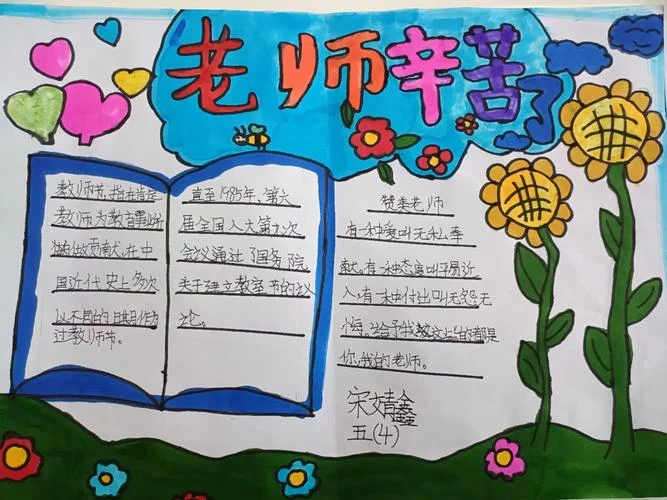 老师辛苦了
教师节,指在肯定
教师为教育事业所
做贡献,在中
国近代史上多次
以不同的日期作为
过教师节。
直至1985年,第六
届全国人大第九次
会议通过了国务院
关于建立教室节的议
论。
赞美老师
有一种爱叫无私奉
献。有一种态度叫平易近
人,有一种付出叫无怨无
悔。给予我这一的都是
你,我的老师。
宋婧鑫
五(4)